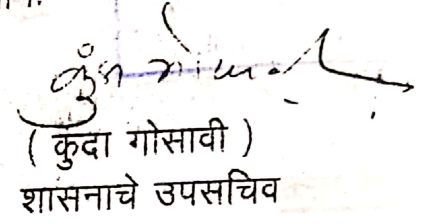 ( कुंदा गोसावी )
शासनाचे उपसचिव